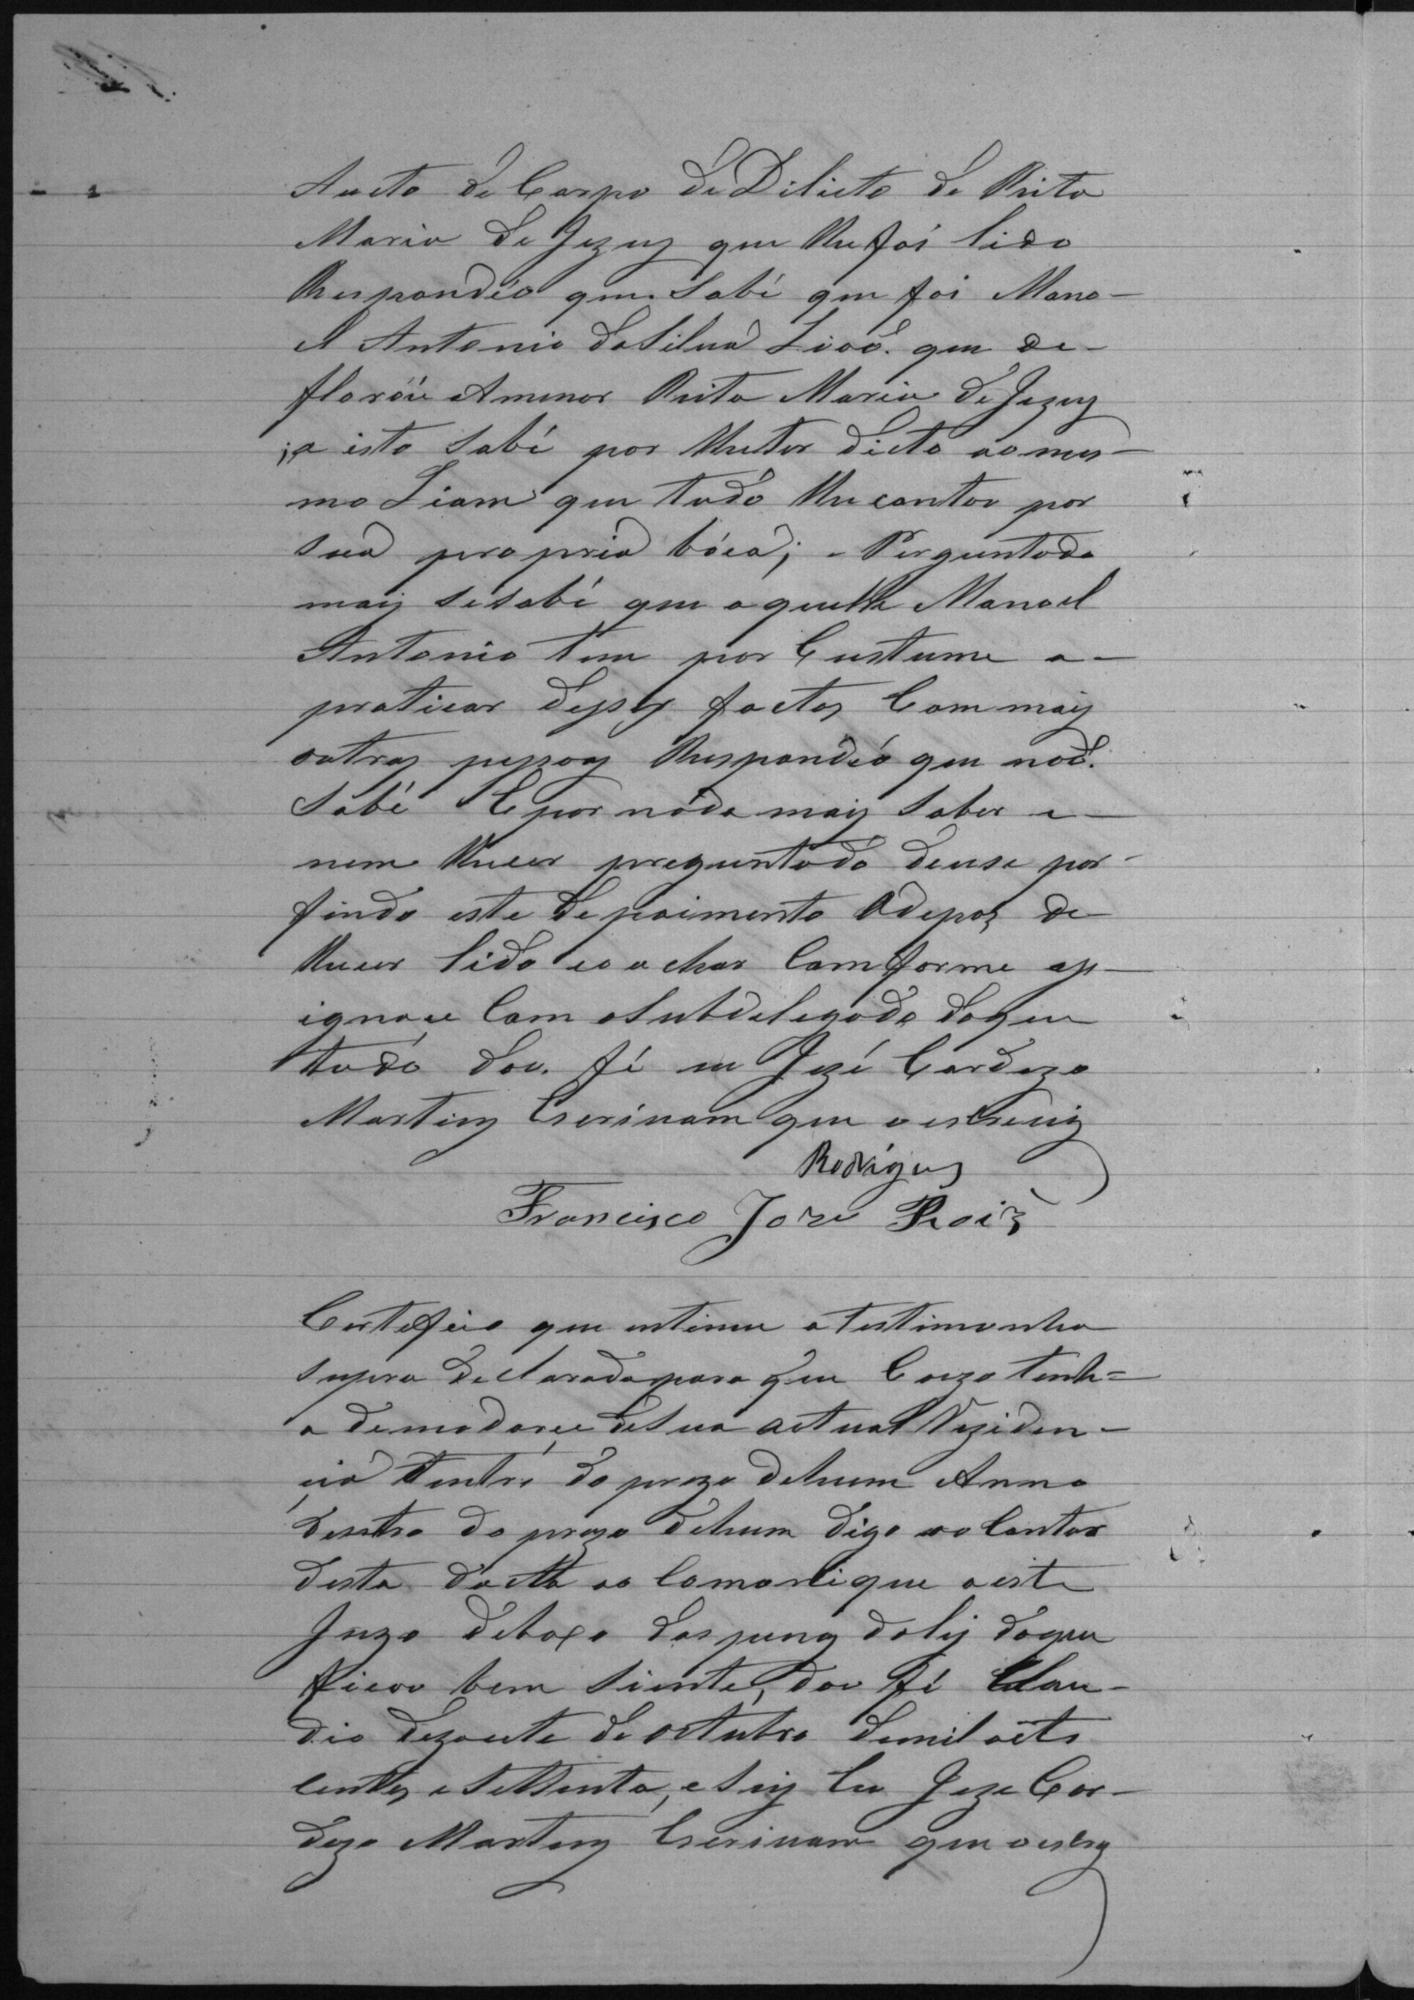 Aucto de Corpo de Delicto de Rita
Maria de Jezus que lhe foi lido
Respondéo que Sabe que foi Mano-
el Antonio da Silva Liaõ. que de-
floróu A menor Rita Maria de Jezus
e isto Sabe por hater dicto ao mes-
mo Liam que tudo lhe contou por
sua propria bóca; Perguntado
mais se sabe que aquelle Manoel
Antonio tem por Custume a-
praticar desses factos Com mais
outras pessoas Respondéo que naõ.
Sabe E por nada mais Saber e
nem lhe ser preguntado deuse por
findo este depoimento Odepos de
lhe ser lido eo achar Comforme as-
ignou Com o Subdelegado doque
tudo dou. fé eu Jozé Cardozo
Martins Escrivam que o escrevis
Rodrigues
Francisco Joze Roiz
Certefico que entimei a testimonha
supra declarada para que Cazo tenh=
a demudarce de Sua actual Reziden-
cia dentro do prazo de hum Anno
dentro do prazo de hum digo ao Contar
desta dacta ao Comonique a este
Juzo debaxo das penas da lej doque
ficou bem Siente, dou fé Clau-
dio dezoute de octubro de mil oito
centos e settenta, e Seis Eu Joze Car-
dozo Martins Escrivam que o escrevi